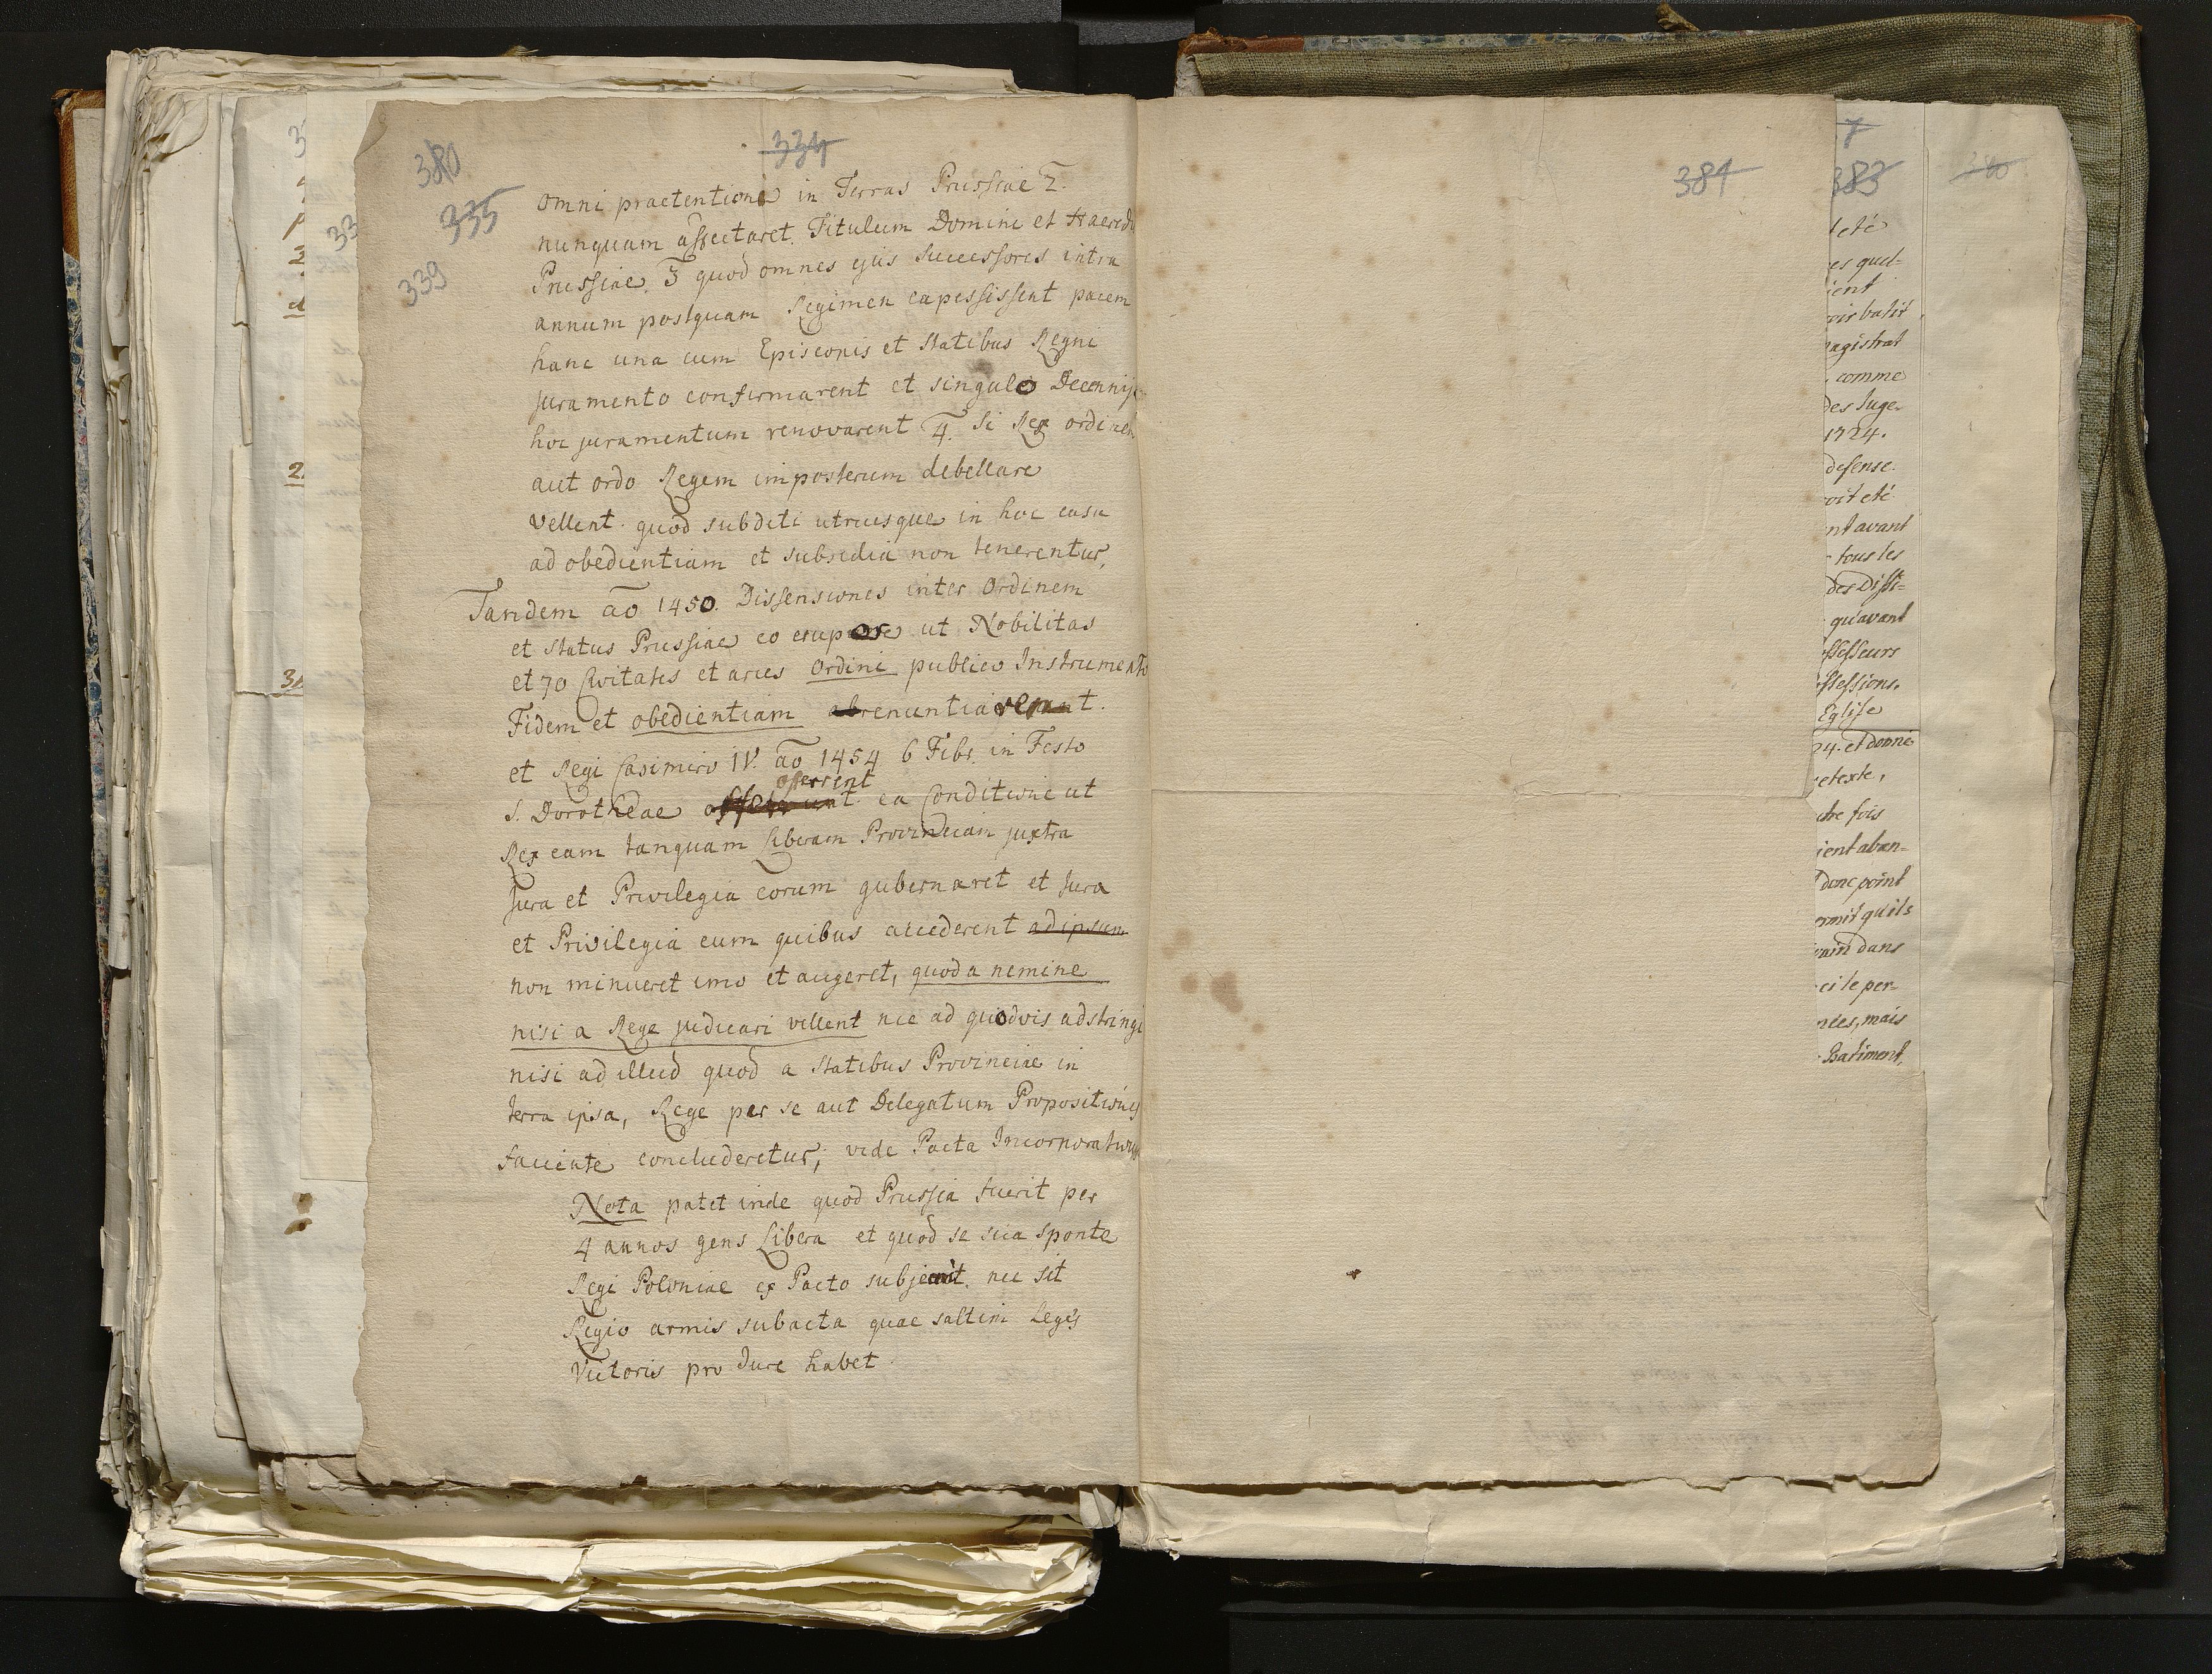 334
380
335
339
omni praetentione in Terras Prussiae 2.
nunquam affectaret. Titulum Domini et Haeredis
Prussiae. 3 quod omnes ejus Successores intra
annum postquam Regimen capessissent pacem
hanc una cum Episcopis et Statibus Regni
juramento confirmarent et singulo Decennijo
hoc juramentum renovarent 4. Si Rex ordinem
aut ordo Regem imposterum debellare
vellent. quod subditi utriusque in hoc casu
ad obedientiam et subsidia non tenerentur,
Tandem ao 1450. Dissensiones inter Ordinem
et Status Prussiae eo erupere ut Nobilitas
et 70 Civitates et arces Ordini publico Instrumento
Fidem et obedientiam abrenuntiaverant.
et Regi Casimiro IV. ao 1454 6 Febr. in Festo
offerrent
S. Dorotheae ea Conditione ut
Rex eam tanquam Liberam Provinciam juxta
Jura et Privilegia eorum gubernaret et Jura
et Privilegia cum quibus accederent ad ipsum
non minueret imo et augeret, quod a nemine
nisi a Rege judicari vellent nec ad quodvis adstringi
nisi ad illud quod a Statibus Provinciae in
terra ipsa, Rege per se aut Delegatum Propositiones
faciente concluderetur; vide Pacta Incorporationis
Nota patet inde quod Prussia fuerit per
4 annos gens Libera et quod se sua sponte
Regi Poloniae ex Pacto subjecit. nec sit
Regio armis subacta quae saltim Leges
Victoris pro Jure habet
384
7
383
380
été
es quel-
ient
oir batir
agistrat
comme
des Juge-
1724.
defense.
oit eté
nt avant
tous les
des Dissi-
qu'avant
ssesseurs
ssessions.
Eglise
24. et donne
etexte,
tre fois
ient aban-
donc point
ermit qu'ils
dans
ci le per-
ntes, mais
Batiment,